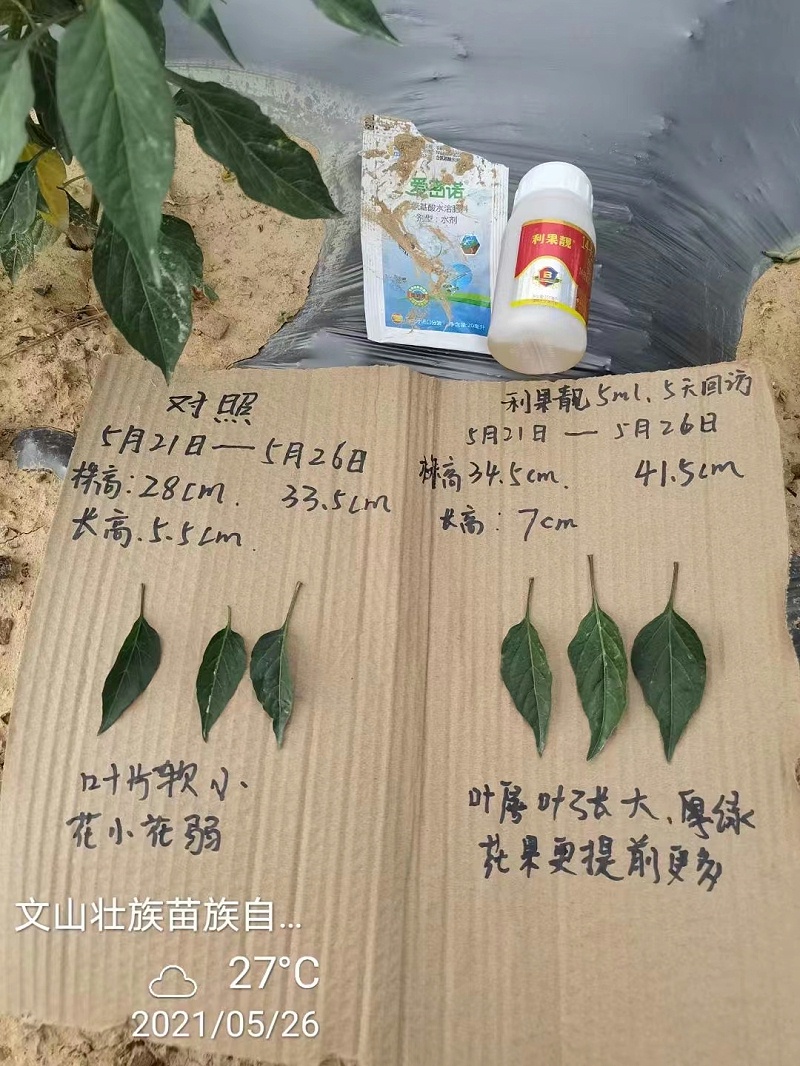 爱密诺
氨基酸水溶肥料
剂型：水剂
利果靓
对照
5月21日—5月26日
株高：28cm. 33.5cm
长高.5.5cm.
利果靓5ml、5天回访
5月21日 — 5月26日
株高34.5cm. 41.5cm
长高：7cm
叶片软小.
花小花弱
叶厚叶子长大、厚绿
花果更提前更多
文山壮族苗族自...
27°C
2021/05/26